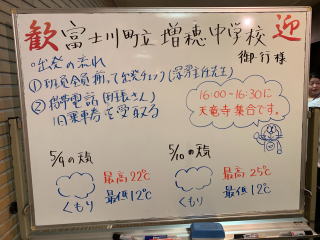 歓 富士川町立 増穂中学校 迎
御一行様
○出発の流れ
①班員全員揃って出発チェック
②携帯電話
を受取る
16:00-16:30に
天竜寺集合です。
5/9の天気
最高22℃
最低12℃
くもり
5/10の天気
最高25℃
最低12℃
くもり